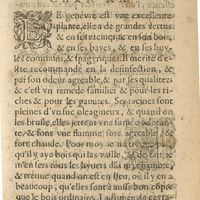 LE genévre est vne excellente
plante, elle a de grandes vertus
& en ses racines, & en son bois,
& en ses bayes, & en ses huy-
les communs, & spagiriques. Il merite d'e-
stre recommandé en la desinfection, &
par son odeur agreable, & par les qualitez
& c'est vn remede familier & pour les ri-
ches, & pour les pauures. Ses racines sont
pleines d'vn suc oleagineux, & quand on
les brusle, elles jettent vne fumée odoran-
te, & font vne flamme fort agreable, &
fort chaude. Pour moy je ne trouue pas
qu'il y aye bois qui les vaille, & de fait je
m'en sers tous les hyuers à ma chambre,
& treuue quand on est en lieu, où il y en a
beaucoup, qu'elles sont à aussi bon compte
que le bois ordinaire. La fumée de ceste